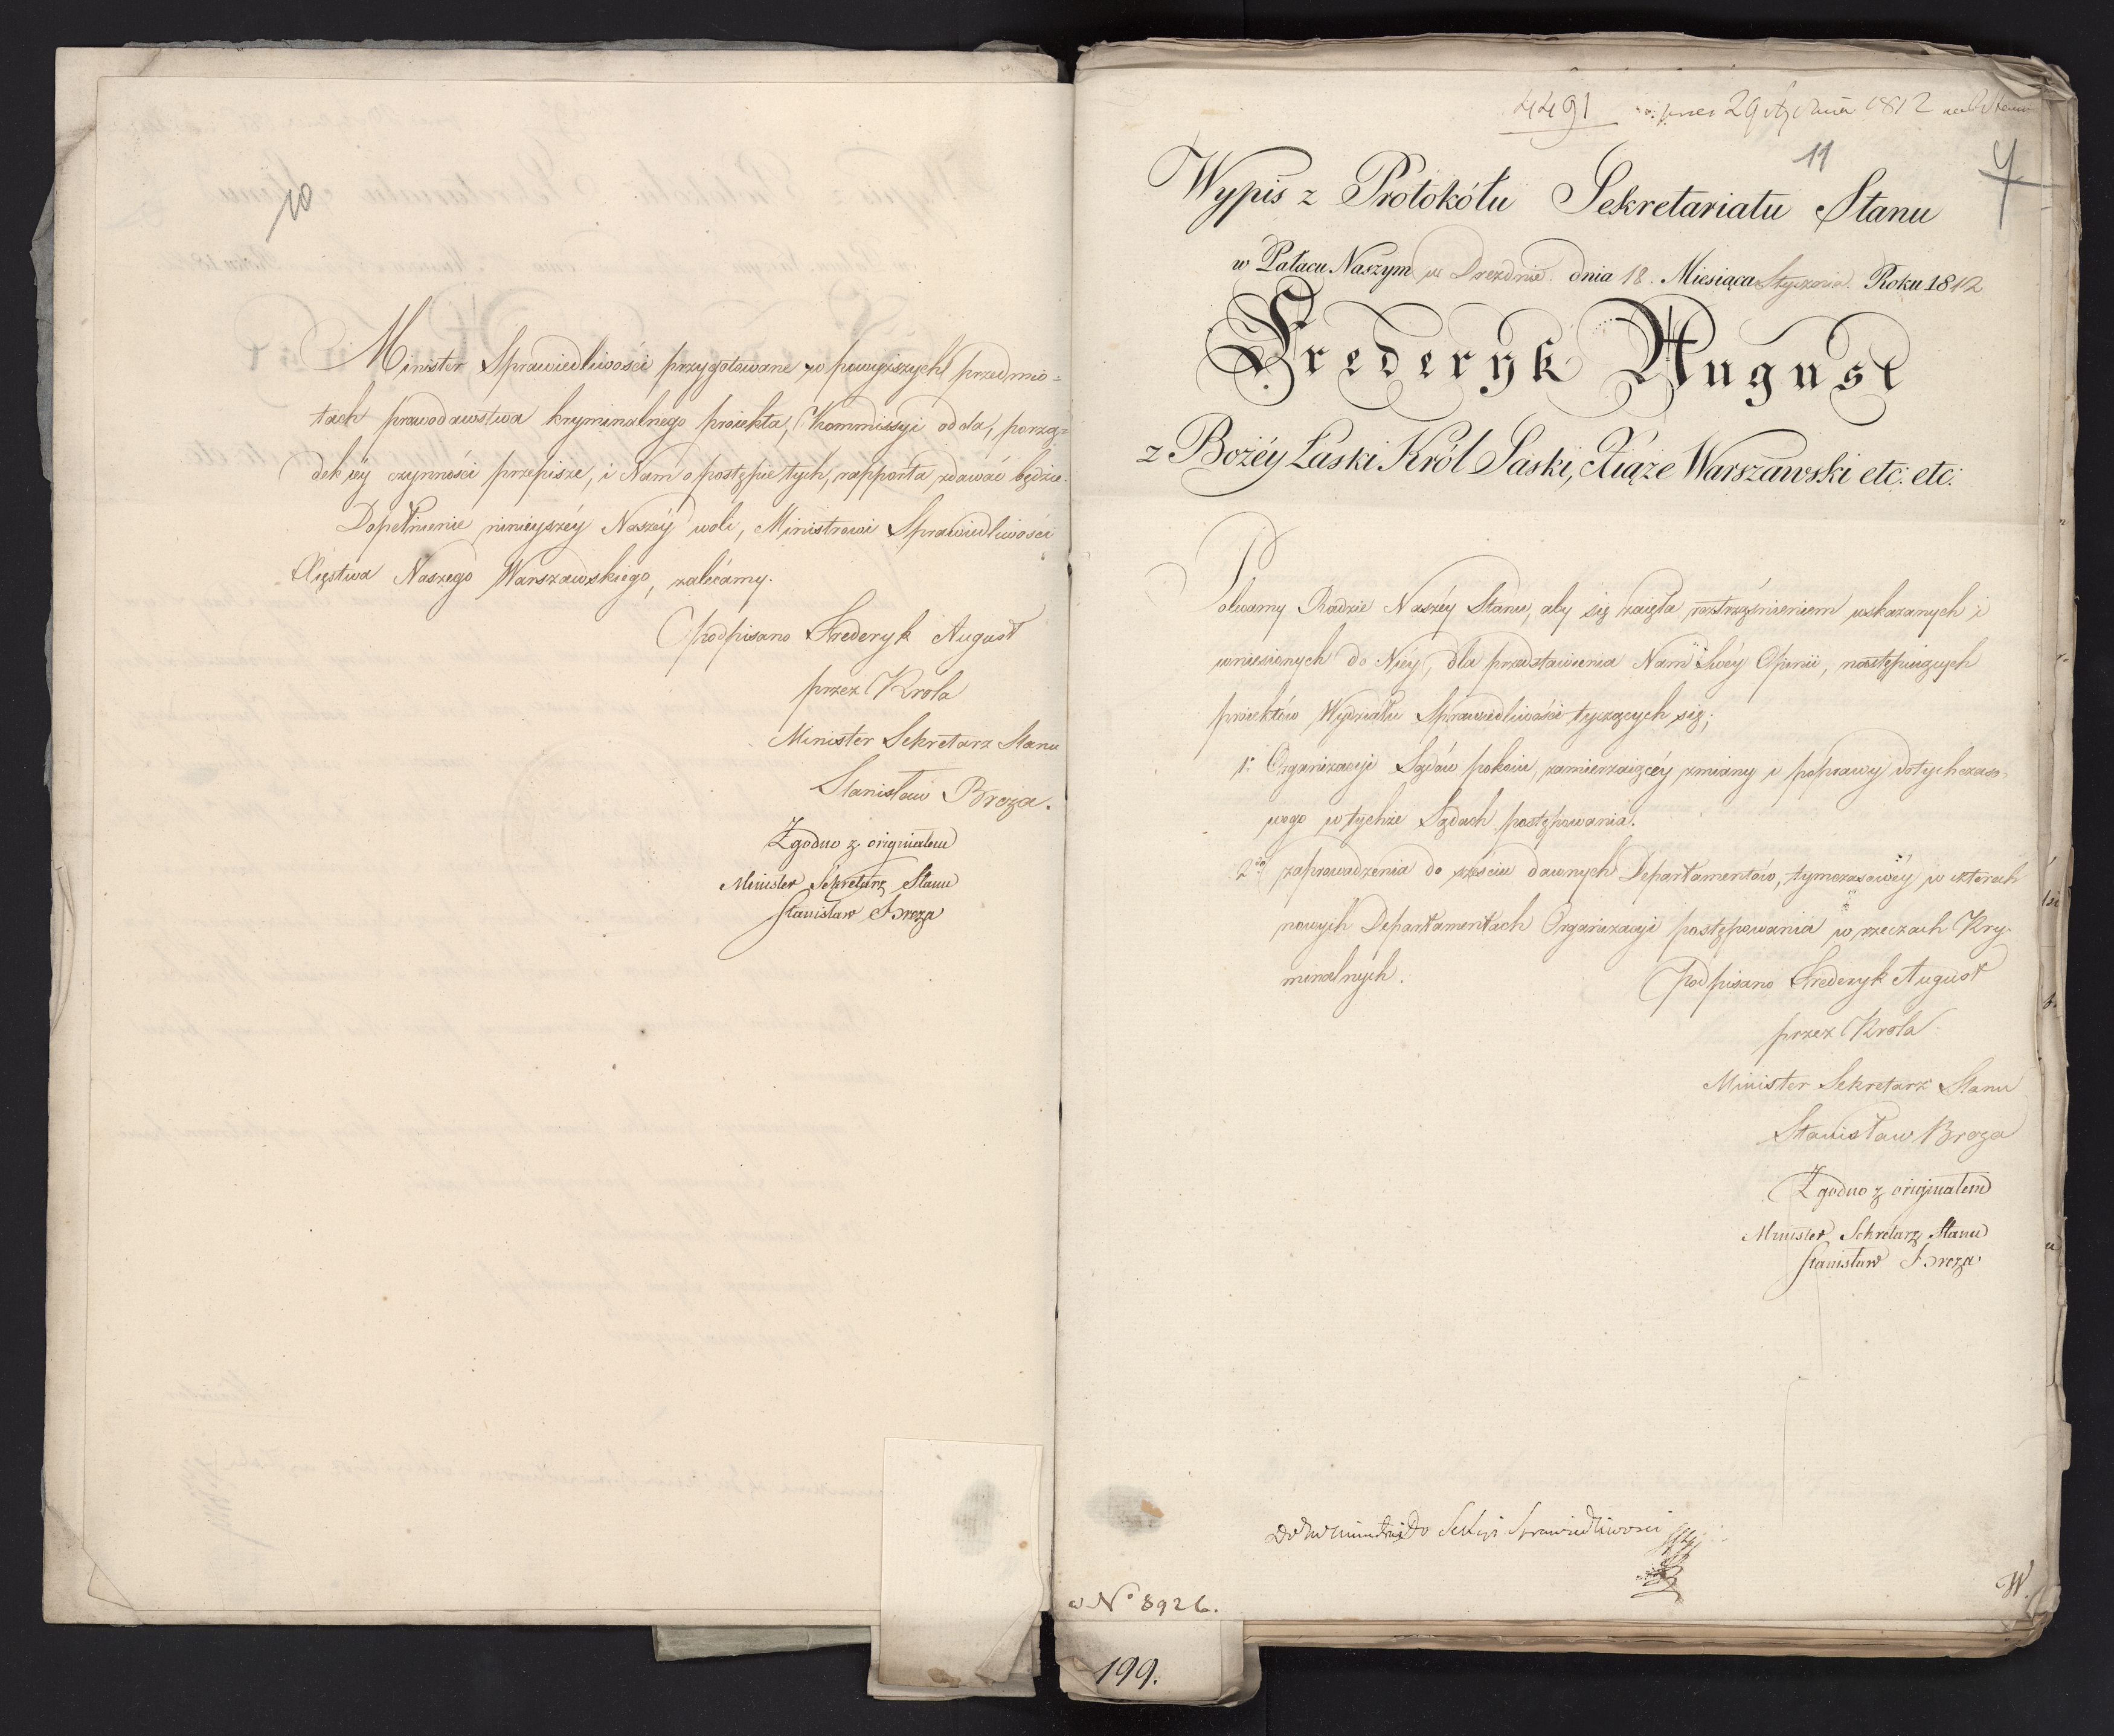 10
Minister Sprawiedliwości przygotowane w powyższych przedmio=
tach prawodawstwa kryminalnego proiekta, Kommissyi odda, porzą=
dek iéy czynności przepisze, i Nam o postępie tych, rapporta zdawać będzie.
Dopełnienie ninieyszéy Naszéy woli, Ministrowi Sprawiedliwości
Xięstwa Naszego Warszawskiego, zalécamy.
podpisano Frederyk August
przez Krola
Minister Sekretarz Stanu
Stanisław Breza.
Zgodno z originałem
Minister Sekretarz Stanu
Stanisław Breza
4491 29 Stycznia 1812
11
4
Wypis z Protokółu Sekretariatu Stanu
w Pałacu Naszym w Dreznie. dnia 18. Miesiąca Stycznia. Roku 1812
Frederyk August
z Bożéy Łaski Król Saski, Xiąże Warszawski etc: etc:
Polecamy Radzie Naszéy Stanu, aby się zaięła roztrząśnieniem wskazanych i
wniesionych do Niéy, dla przedstawienia Nam Swéy Opinii, następuiących
proiektów Wydziału Sprawiedliwości tyczących się;
1. Organizacyi Sądów pokoiu, zamierzaiącéy zmiany i poprawy dotychczaso=
wego w tychże Sądach postępowania.
2do zaprowadzenia do sześciu dawnych Departamentów, tymczasowéy w czterech
nowych Departamentach Organizacyi postępowania w rzeczach Kry=
minalnych.
Podpisano Frederyk August
przez Krola
Minister Sekretarz Stanu
Stanisław Breza
Zgodno z originałem
Minister Sekretarz Stanu
Stanisław Breza
Do Sekcyi Sprawiedliwosci
W.
a No 8926.
199.